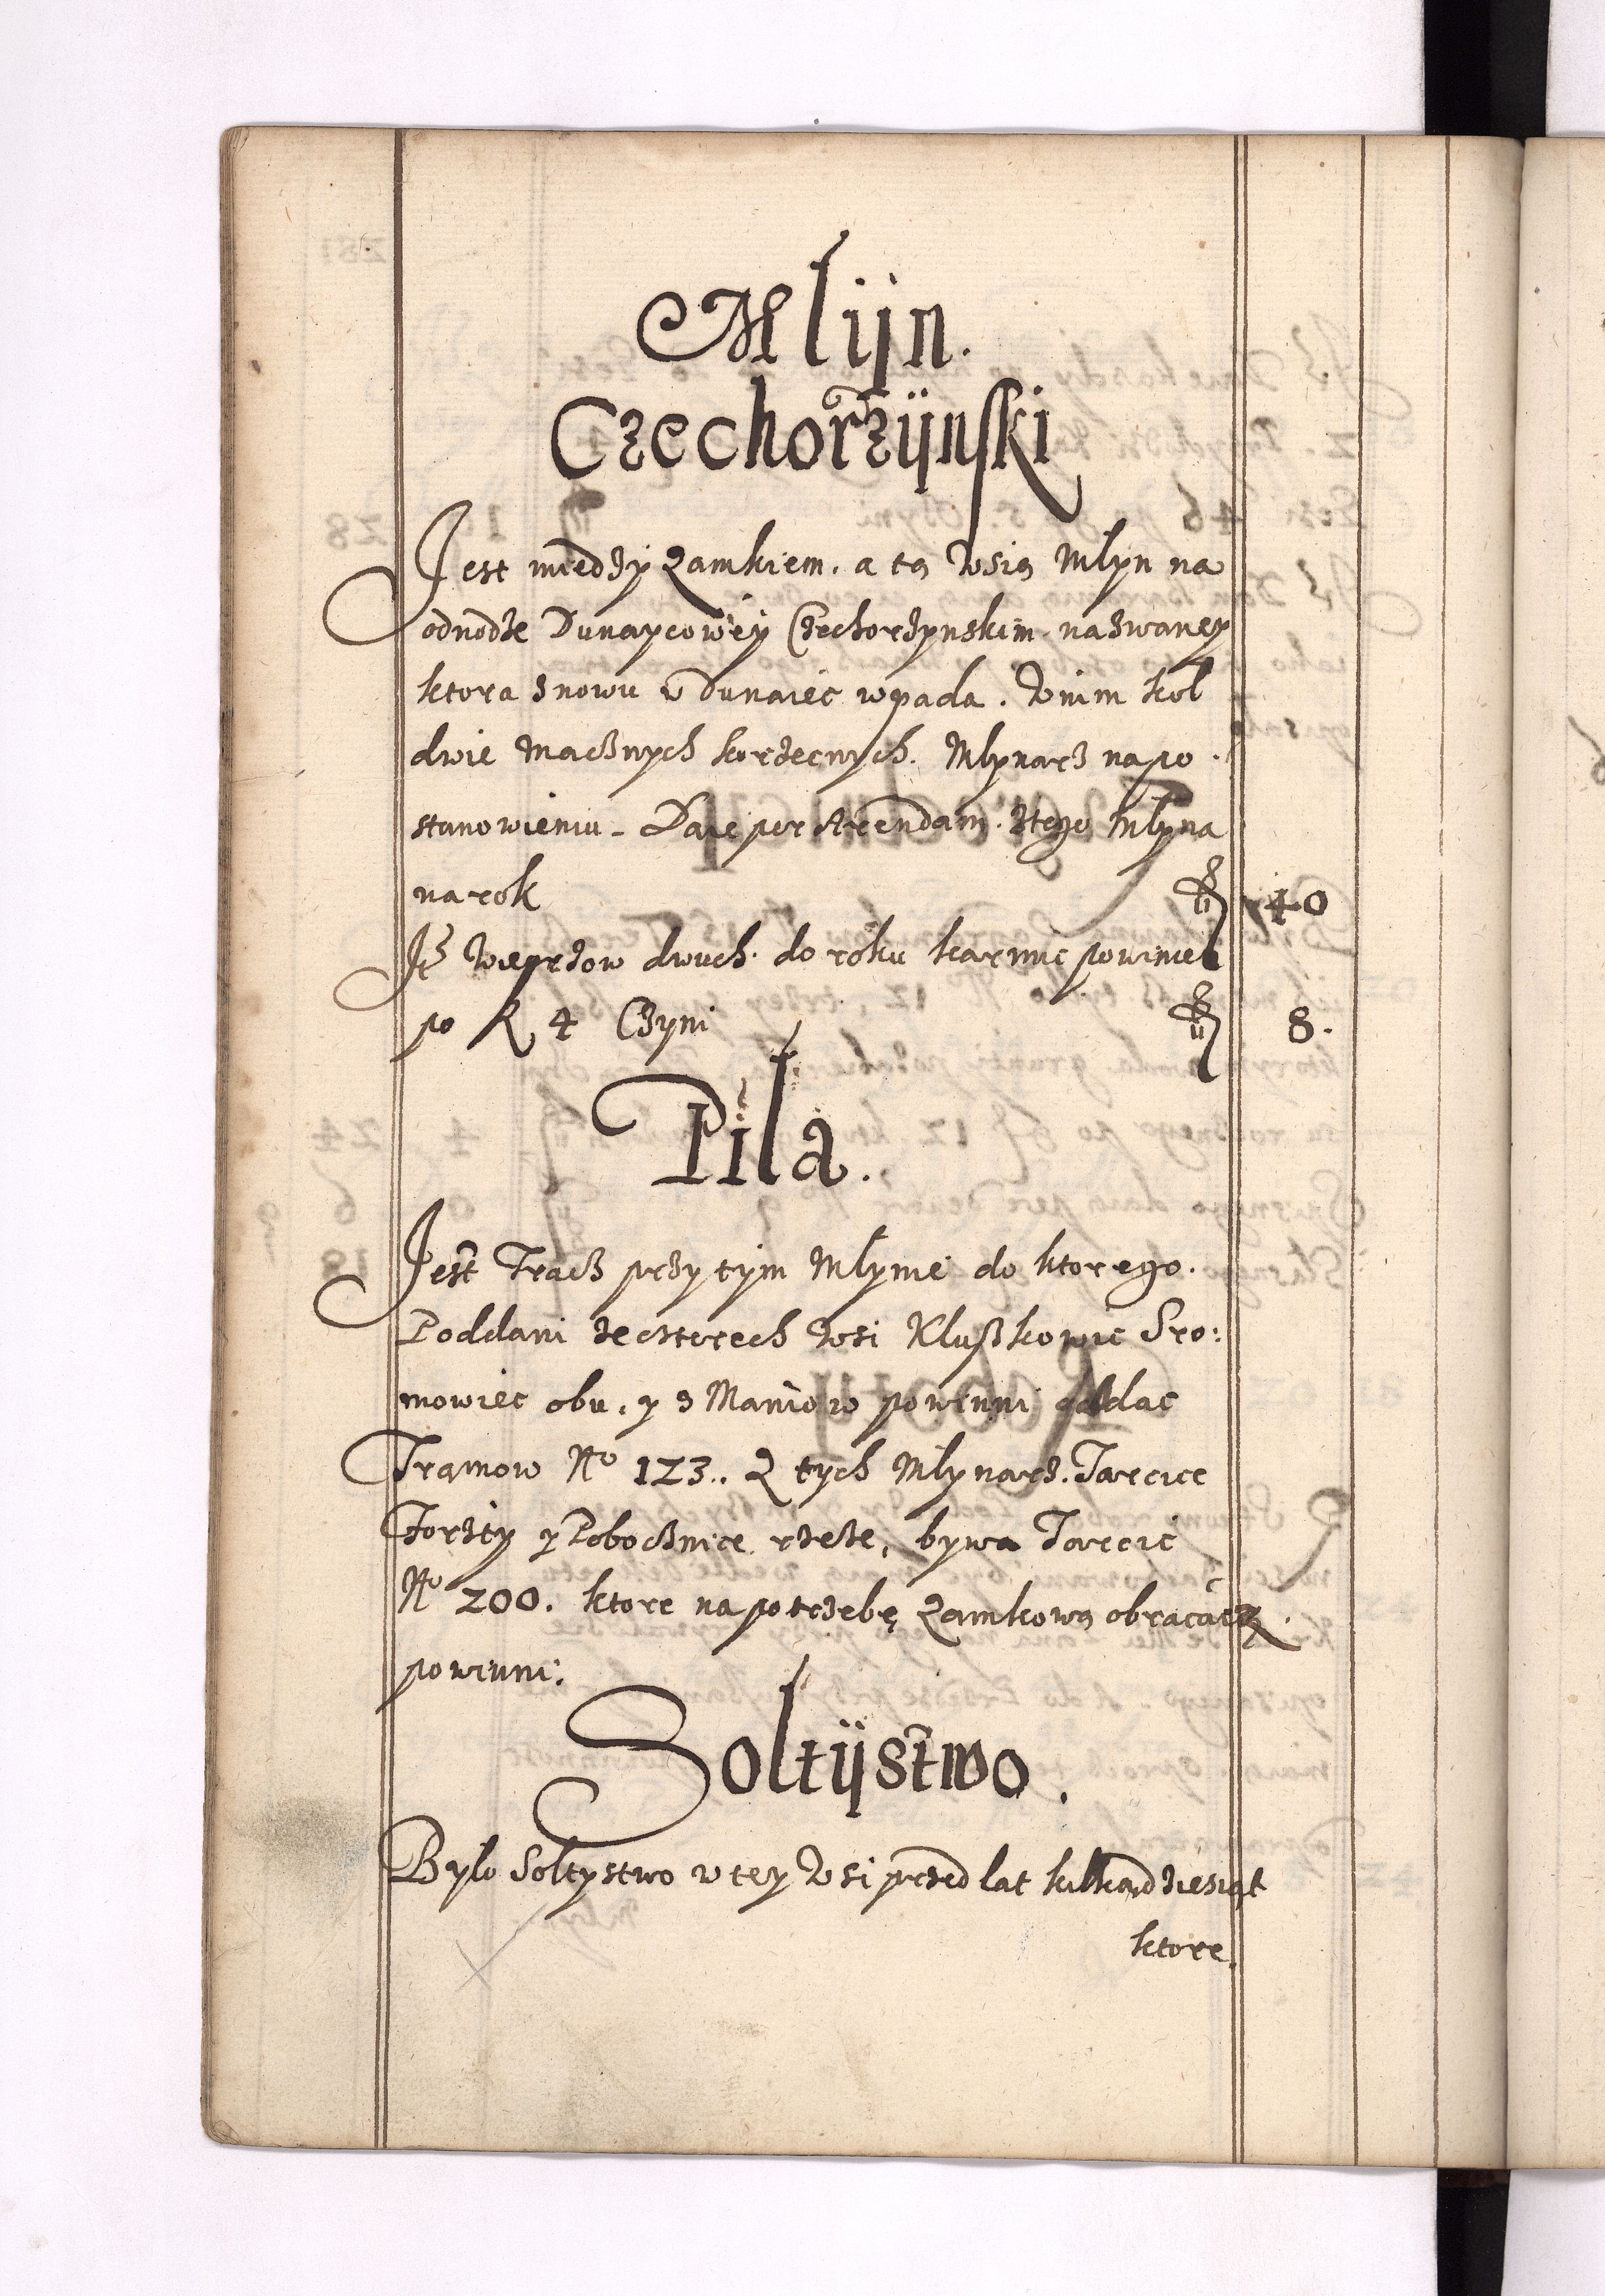 Mlijn.
Czechorzijnski
Jest miedzy Zamkiem. a tą Wsią Mlyn na
odnodze Dunaycowey Czechorzynskim nazwaney
ktora znowu w Dunaiec wpada. W nim kol
dwie macznych korzecznych. Mlynarz na po
stanowieniu. Daie per Arendam. z tego Mlyna
na rok 40
It Wieprzow dwuch. do roku karmic powinien
po R 4 Czyni 8.
Pila.
Jest Tracz przy tym Mlynie do ktorego.
Poddani ze czterech Wsi Kluszkowic Sro:
mowiec obu, y z Maniow powinni oddac
Tramow No 123.. Z tych Mlynarz. Tarcice
Forszty y Pobocznice rzeze, bywa Tarcic
No 200. ktore na potrzebę Zamkową obracac
powinni.
Soltijstwo.
Bylo Soltystwo w tey Wsi przed lat kilkadziesiąt
ktore.